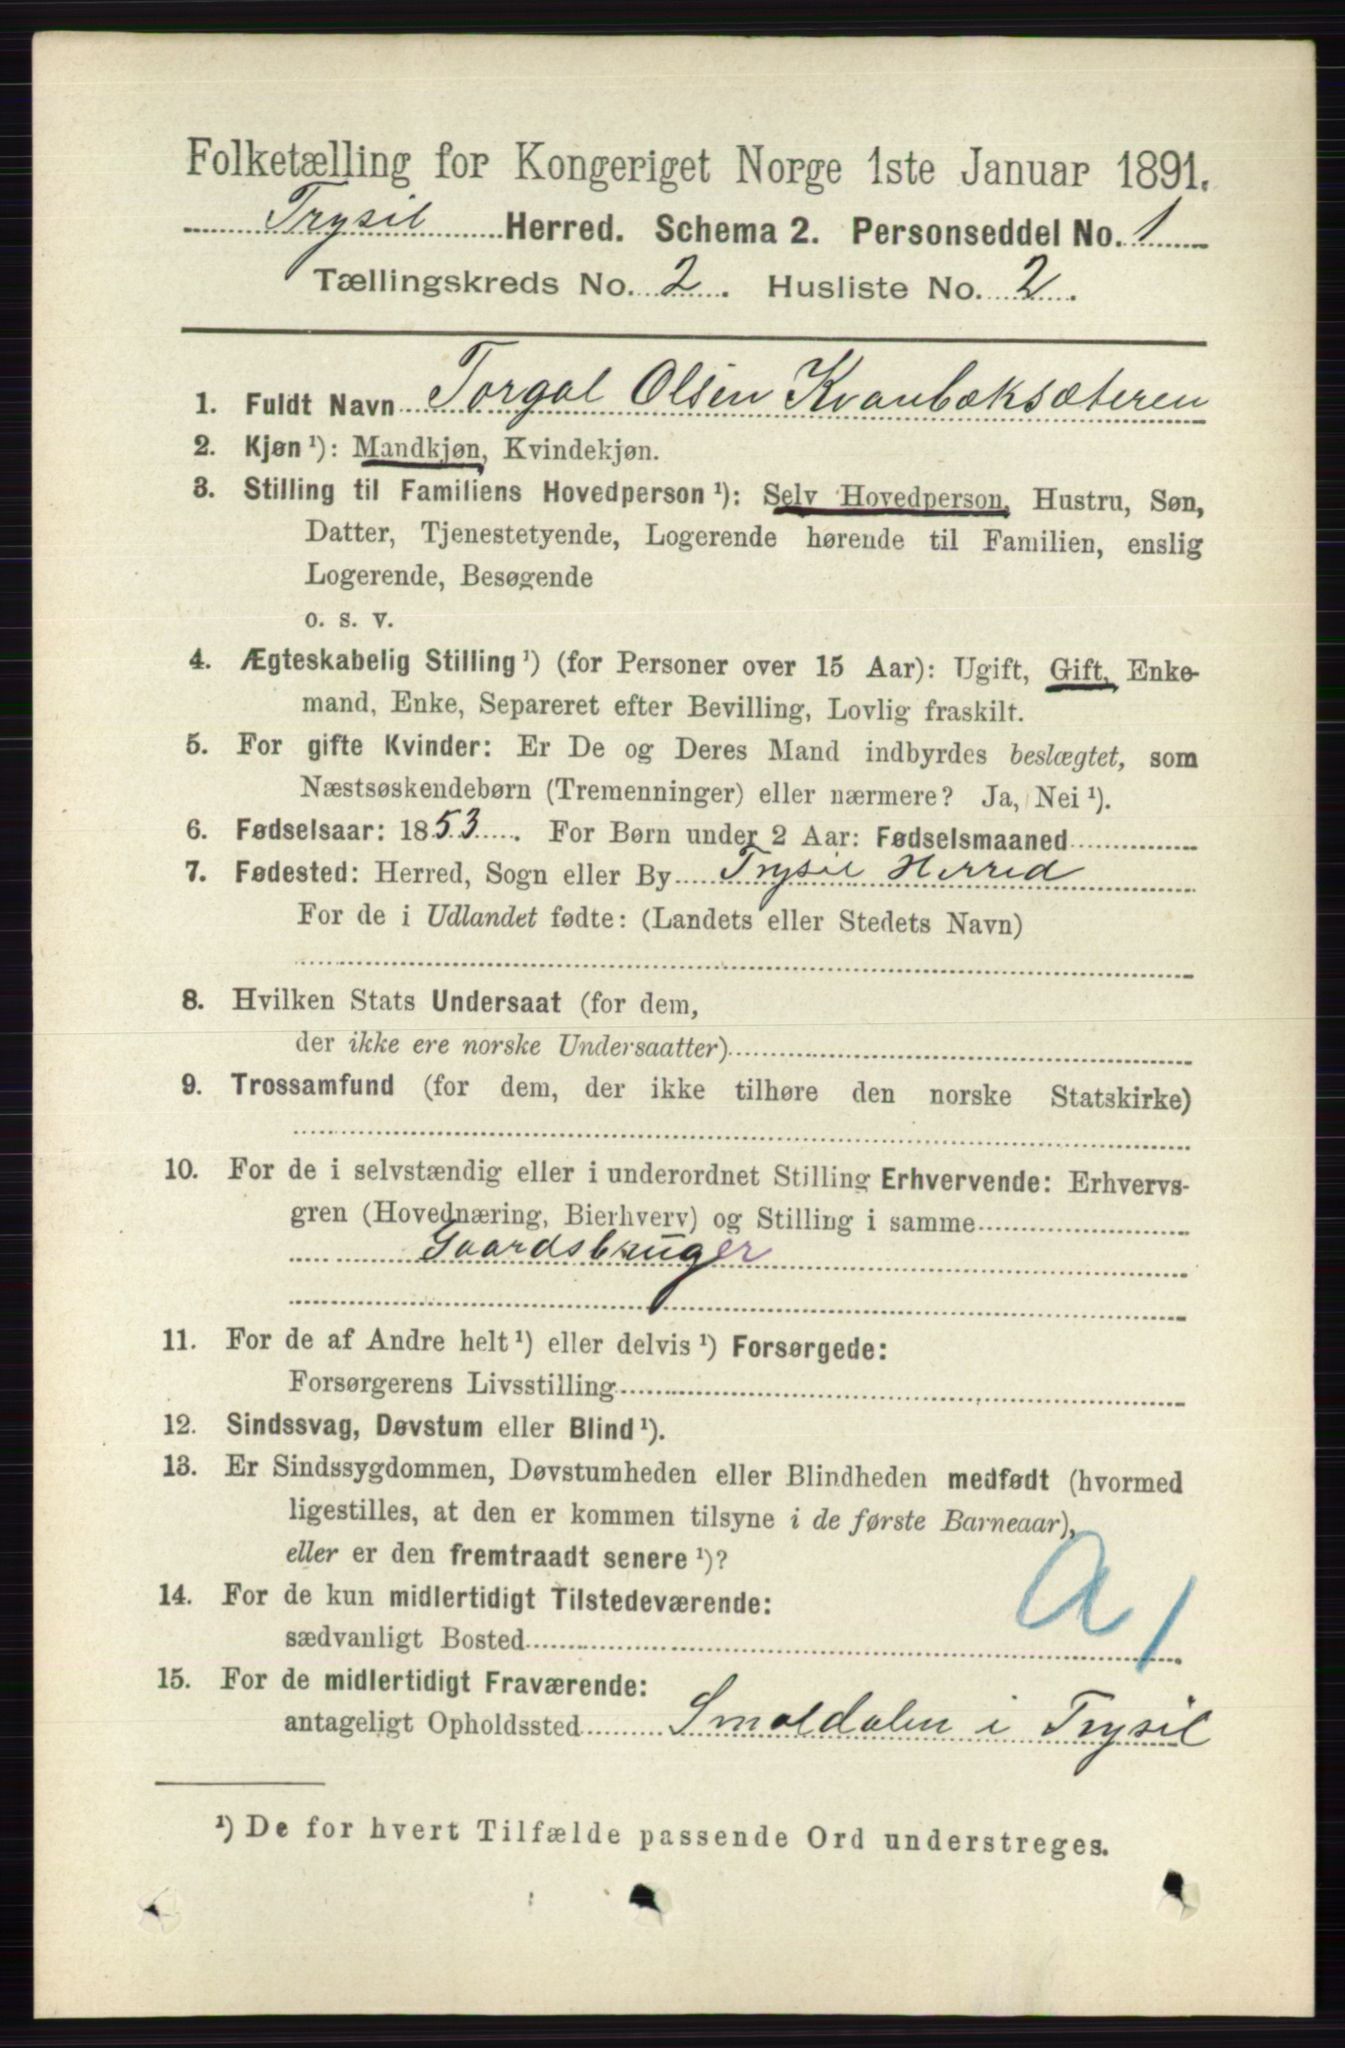 Folketælling for Kongeriget Norge 1ste Januar 1891.
Trysil Herred. Schema 2. Personseddel No. 1
Tællingskreds No. 2. Husliste No. 2.
1. Fuldt Navn Torgal Olsen Kvanbæksæteren
2. Kjøn¹): Mandkjøn, Kvindekjøn.
3. Stilling til Familiens Hovedperson¹): Selv Hovedperson, Hustru, Søn,
Datter, Tjenestetyende, Logerende hørende til Familien, enslig
Logerende, Besøgende
o. s. v.
4. Ægteskabelig Stilling¹) (for Personer over 15 Aar): Ugift, Gift, Enke-
mand, Enke, Separeret efter Bevilling, Lovlig fraskilt.
5. For gifte Kvinder: Er De og Deres Mand indbyrdes beslægtet, som
Næstsøskendebørn (Tremenninger) eller nærmere? Ja, Nei¹).
6. Fødselsaar: 1853. For Børn under 2 Aar: Fødselsmaaned
7. Fødested: Herred, Sogn eller By Trysil Herred
For de i Udlandet fødte: (Landets eller Stedets Navn)
8. Hvilken Stats Undersaat (for dem,
der ikke ere norske Undersaatter)
9. Trossamfund (for dem, der ikke tilhøre den norske Statskirke)
10. For de i selvstændig eller i underordnet Stilling Erhvervende: Erhvervs-
gren (Hovednæring, Bierhverv) og Stilling i samme
Gaardsbruger
11. For de af Andre helt¹) eller delvis¹) Forsørgede:
Forsørgerens Livsstilling
12. Sindssvag, Døvstum eller Blind¹).
13. Er Sindssygdommen, Døvstumheden eller Blindheden medfødt (hvormed
ligestilles, at den er kommen tilsyne i de første Barneaar),
eller er den fremtraadt senere¹)?
14. For de kun midlertidigt Tilstedeværende:
sædvanligt Bosted
A 1
15. For de midlertidigt Fraværende:
antageligt Opholdssted Smoldalen i Trysil
¹) De for hvert Tilfælde passende Ord understreges.